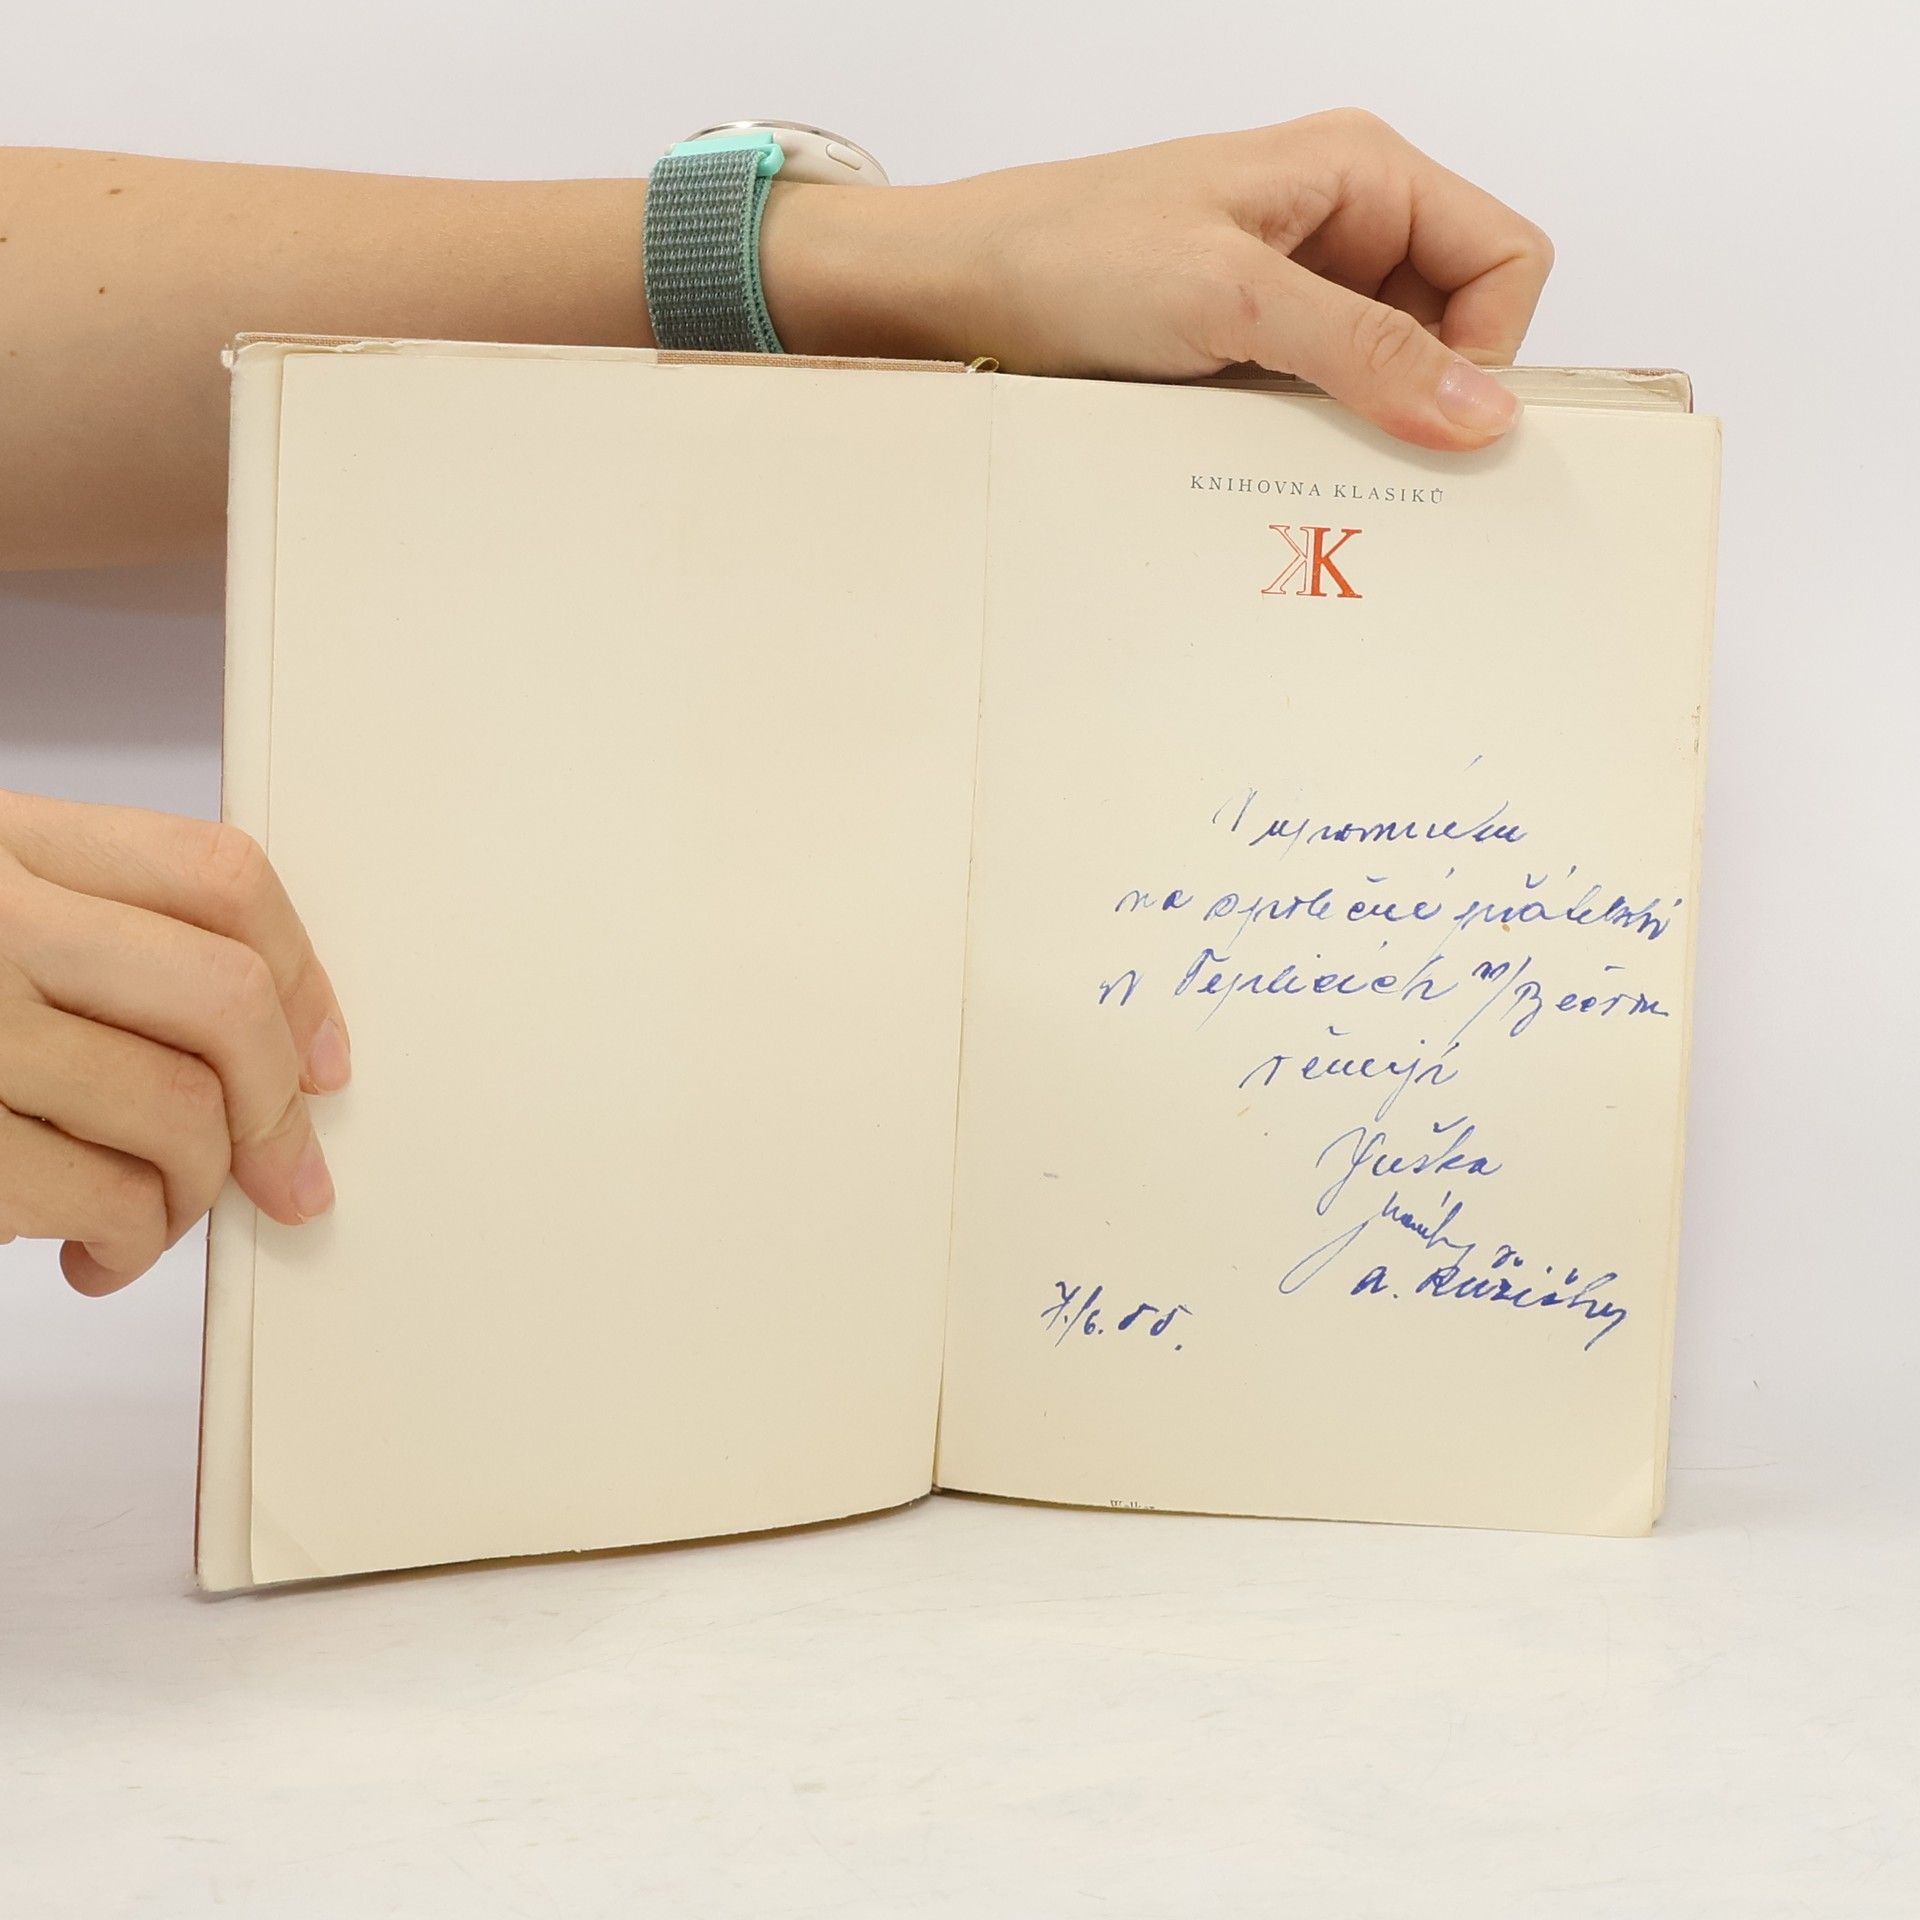 KNIHOVNA KLASIKŮ
KK
V upomínku
na společné přátelství
v Teplicích n/Bečvou
věnují
Juška
a. Růžičky
7./6. 55.